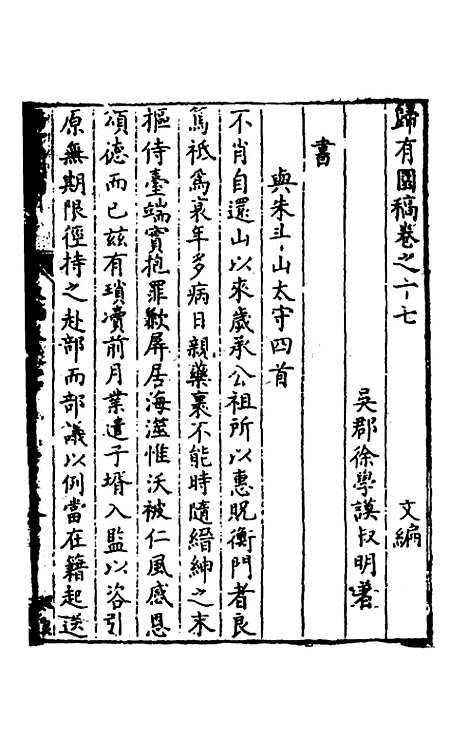 歸有園稿卷之二十七 文編
吳郡徐學謨叔明著
書
與朱斗山太守四首
不肖自還山以來歲承公祖所以惠貺衡門者良
篤衹爲衰年多病日親藥裹不能時隨縉紳之末
樞侍臺端實抱罪歉屏居海澨惟沃被仁風感恩
頌德而已玆有瑣凟前月業遣子壻入監以咨引
原無期限徑持之赴部而部議以例當在籍起送